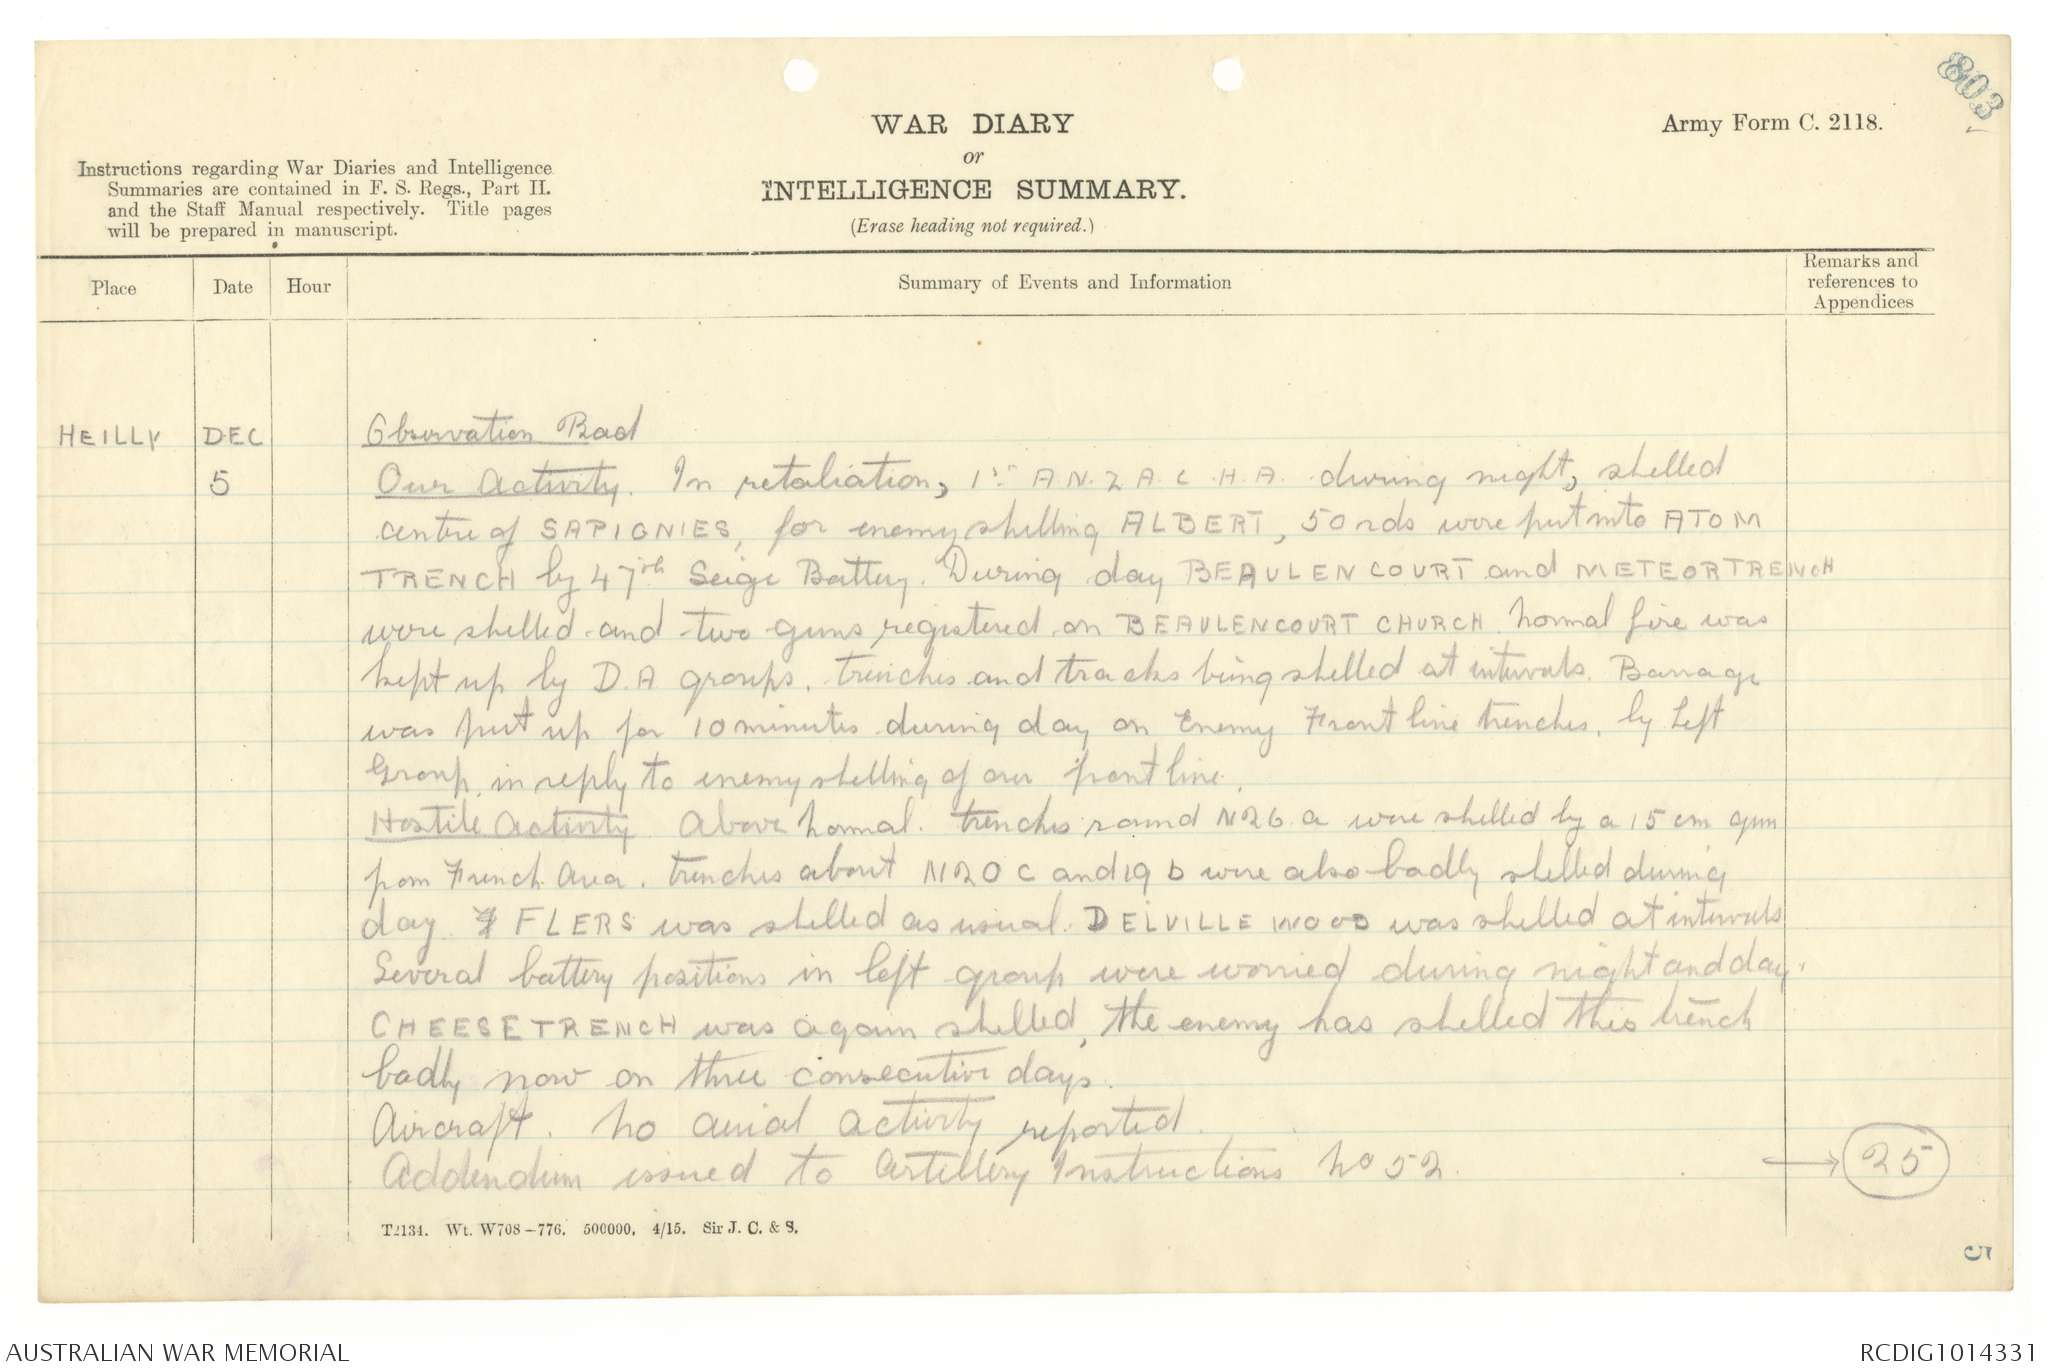 803
WAR DIARY
or
INTELLIGENCE SUMMARY.
(Erase heading not required.)
Army Form C. 2118.
Instructions regarding War Diaries and Intelligence
Summaries are contained in F. S. Regs., Part II.
and the Staff Manual respectively. Title pages
will be prepared in manuscript.
Place Date Hour Summary of Events and Information Remarks and
references to
Appendices
HEILLY DEC Observation Bad
5 Our Activity. In retaliation, 1st A.N.Z.A.C. H.A. during night, shelled
centre of SAPIGNIES, for enemy shelling ALBERT, 50 rds were put into ATOM
TRENCH by 47th Seige Battery. During day BEAULENCOURT and METEOR TRENCH
were shelled and two guns registered on BEAULENCOURT CHURCH. Normal fire was
kept up by D.A groups, trenches and tracks being shelled at intervals. Barrage
was put up for 10 minutes during day on Enemy Front line trenches, by Left
Group, in reply to enemy shelling of our front line.
Hostile Activity Above Normal. Trenches round N26.a were shelled by a 15 cm gun
from French Area. Trenches about N20 C and 19 D were also badly shelled during
day. FLERS was shelled as usual. DELVILLE WOOD was shelled at intervals
Several battery positions in left group were worried during night and day.
CHEESE TRENCH was again shelled, the enemy has shelled this trench
badly now on three consecutive days.
Aircraft. No aerial activity reported.
Addendum issued to Artillery Instructions No 52. → 25
T2134. Wt. W708—776. 500000. 4/15. Sir J. C. & S.
5
AUSTRALIAN WAR MEMORIAL
RCDIG1014331